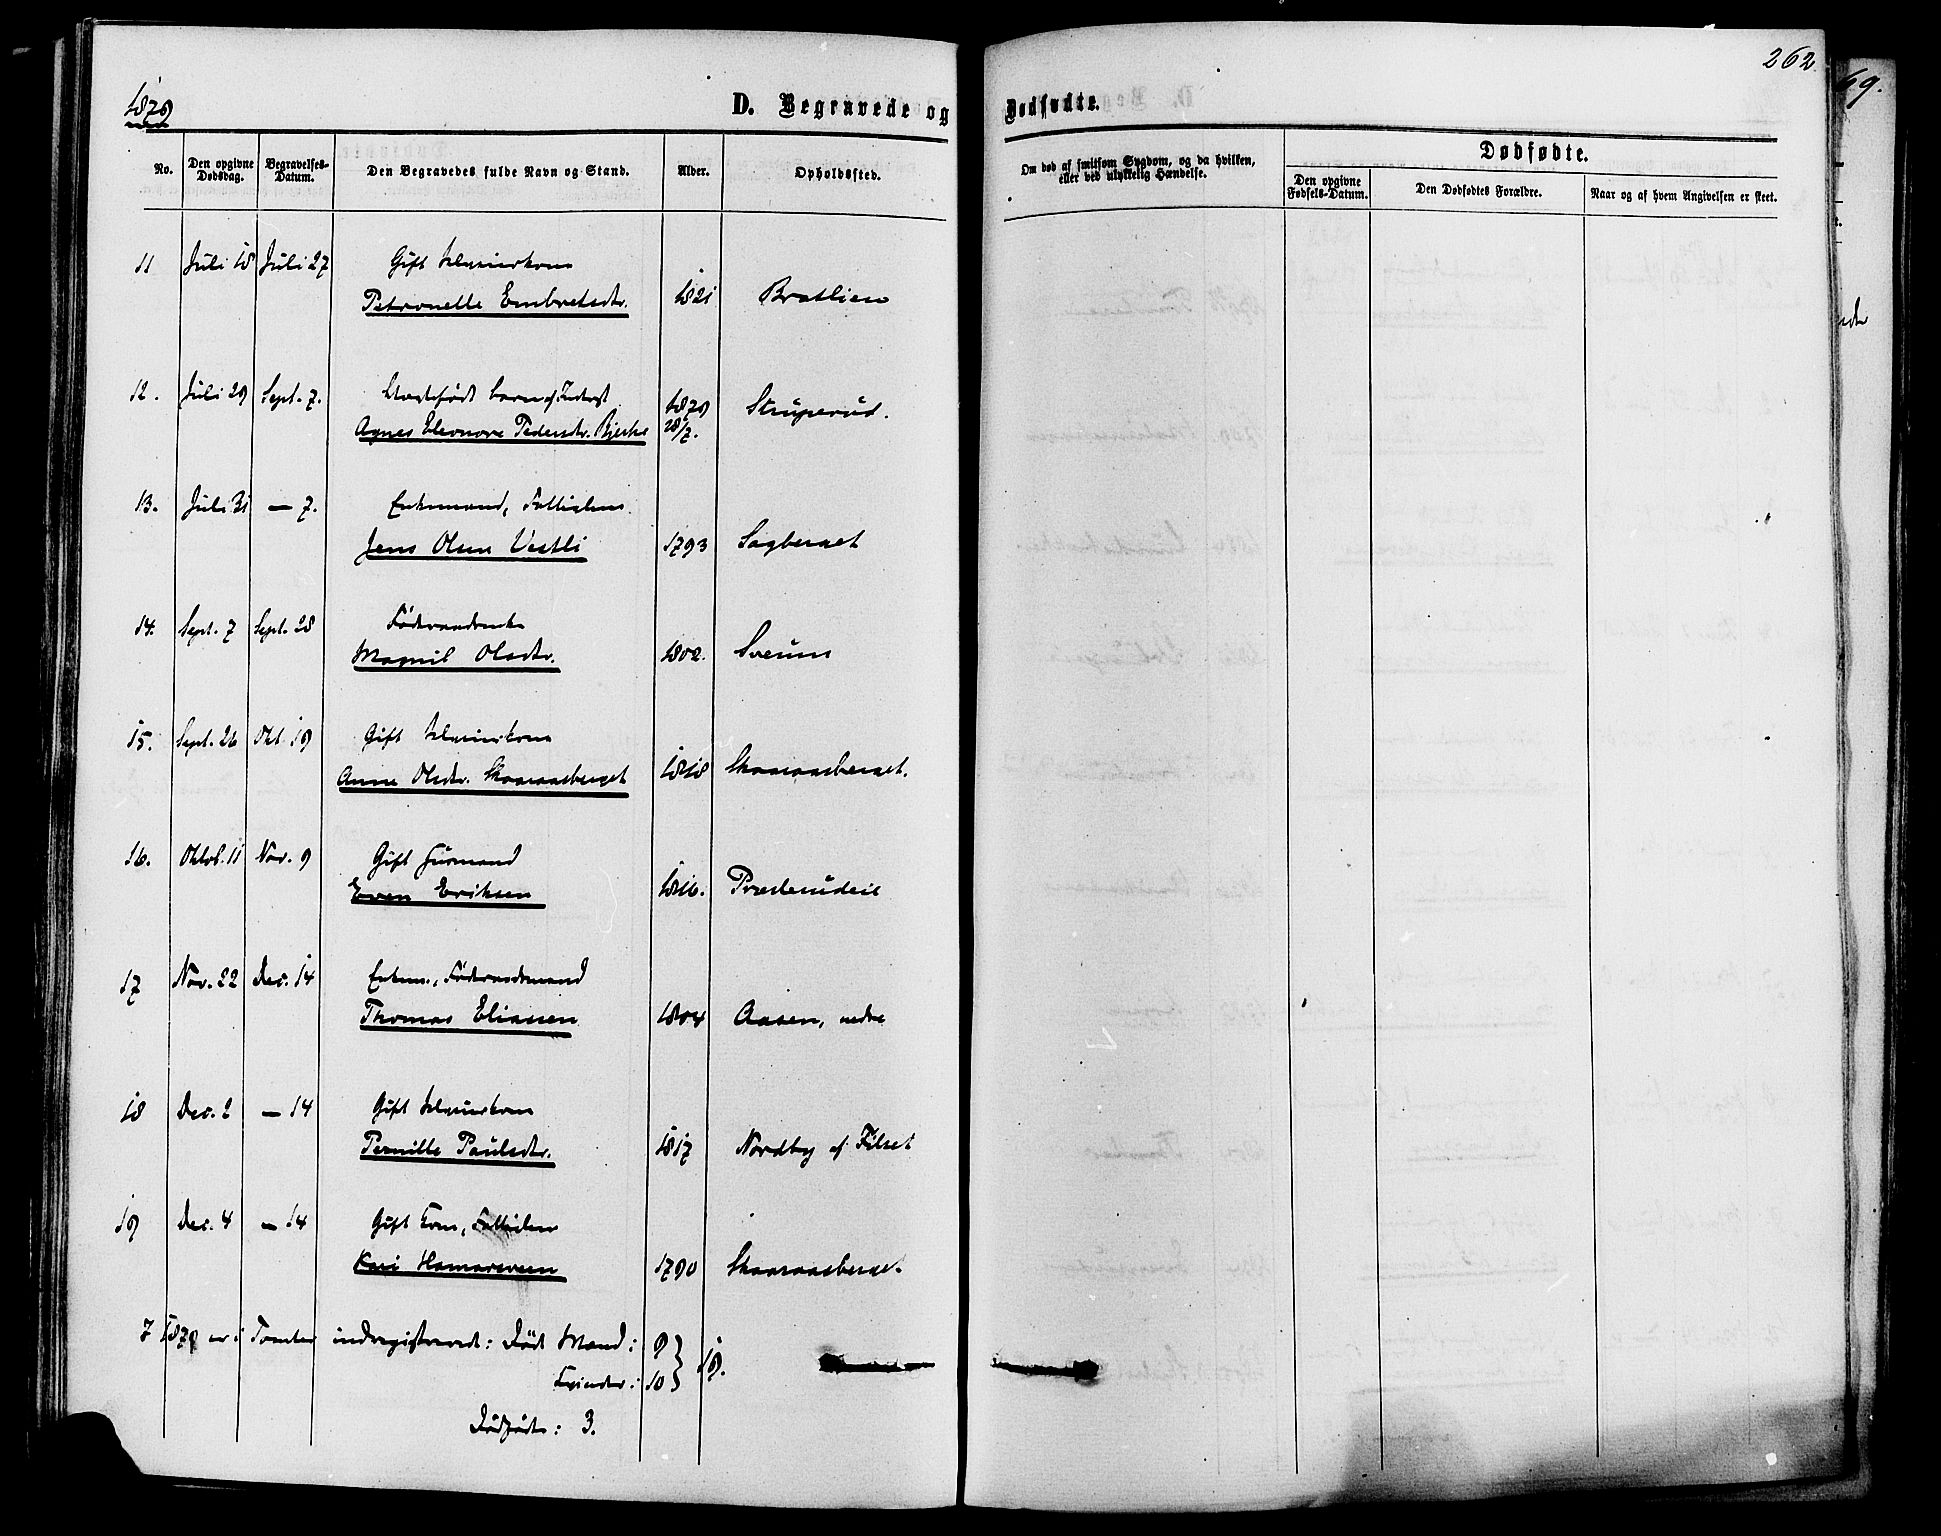 1879
D. Begravede og Dødfødte.
262
69.
No.
Den opgivne Dødsdag.
Begravelses-Datum.
Den Begravedes fulde Navn og Stand.
Alder.
Opholdssted.
Om død af smitsom Sygdom, og da hvilken, eller ved ulykkelig Hændelse.
Dødfødte.
Den opgivne Fødsels-Datum.
Den Dødfødtes Forældre.
Naar og af hvem Angivelsen er skeet.
11 Juli 18 Juli 27 Gift
Petronelle Embretsdtr. 1821 Bratlien
12. Juli 29 Sept. 7. barn af Inderst
Agnes Eleonore Pedersdtr. Bjerke 1879 28/7. Struperud.
13. Juli 31 — 7. Enkemand, Fattiglem
Jens Olsen Vestli 1793 Sagberget
14. Sept. 7 Sept. 28 Føderaadsenke
Magnil Olsdtr. 1802. Sveum
15. Sept. 26 Okt. 19 Gift
Anne Olsdtr. Skaaraasberget 1818 Skaaraasberget.
16. Oktob. 11 Nov. 9 Gift Husmand
Even Eriksen 1816.
17 Nov. 22 Dec. 14 Enkem., Føderaadsmand
Thomas Eliassen 1804 Aasen, nedre
18 Dec. 2 — 14 Gift
Pernille Paulsdtr. 1817 Nordby af Filset
19 Dec. 4 — 14 Gift Kone, Fattiglem
Kari Hamarsveen 1790 Skaaraasberget.
I 1879 er i Tomter indregistreret: Døde Mand: 9
Kvinder: 10 } 19.
Dødfødte: 3.